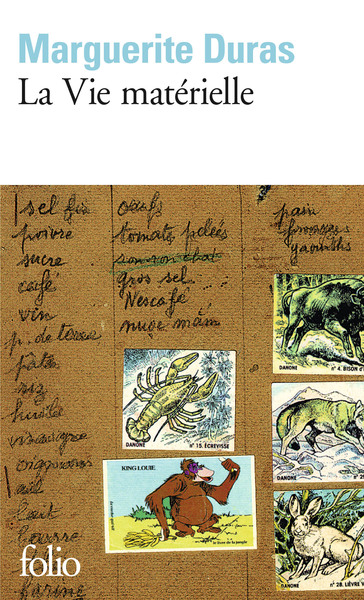 Marguerite Duras
La Vie matérielle
sel fin
poivre
sucre
café
vin
p. de terre
pâtes
riz
huile
vinaigre
oignons
ail
lait
beurre
farine
oeufs
tomates pelées
gros sel
Nescafé
nuoc mâm
pain
fromages
yaourths
DANONE n° 4. BISON d'
DANONE n° 15. ECREVISSE
DANONE
KING LOUIE
le livre de la jungle
DANONE n° 28. LIÈVRE V
folio